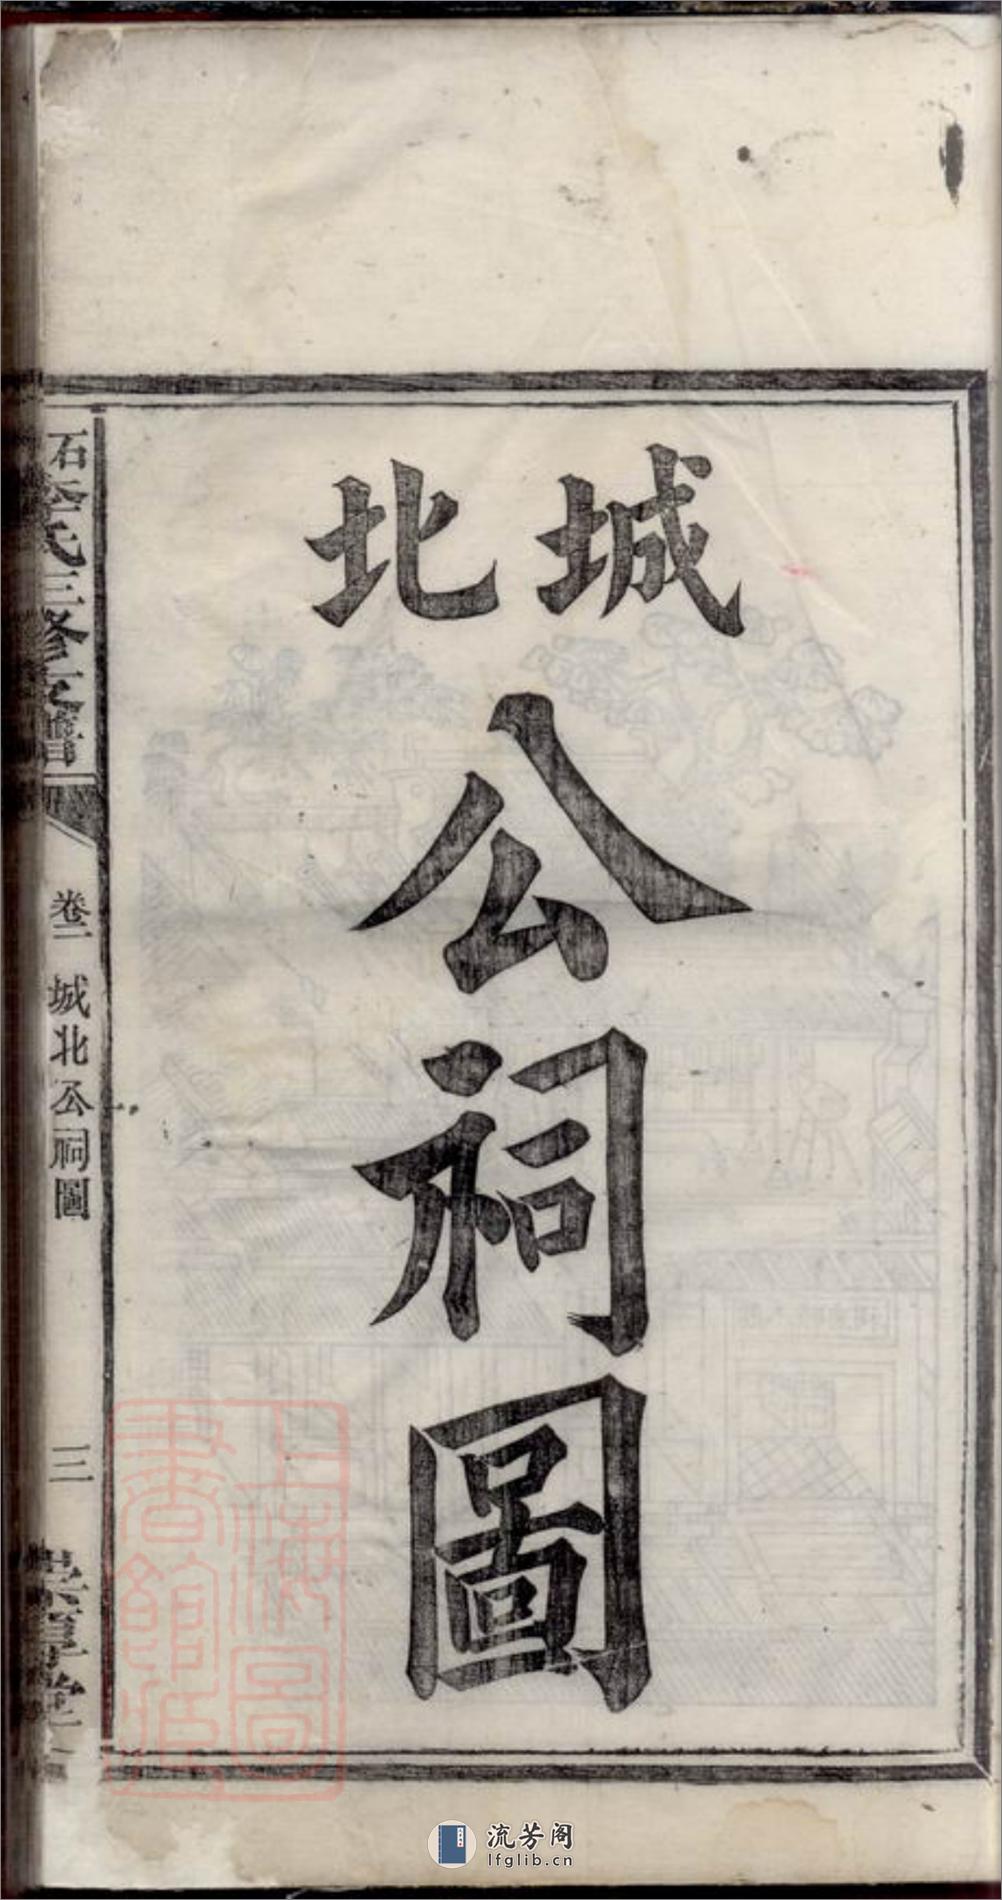 城北
公祠圖
石
氏三修支譜
卷二
城北公祠圖
三
堂
上海圖
書館藏
流芳阁
lfglib.cn